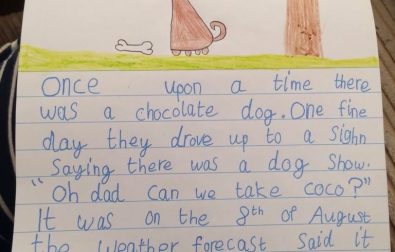 Once upon a time there
was a chocolate dog. One fine
day they drove up to a sighn
Saying there was a dog show.
"Oh dad can we take coco?"
It was on the 8th of August
the weather forecast said it